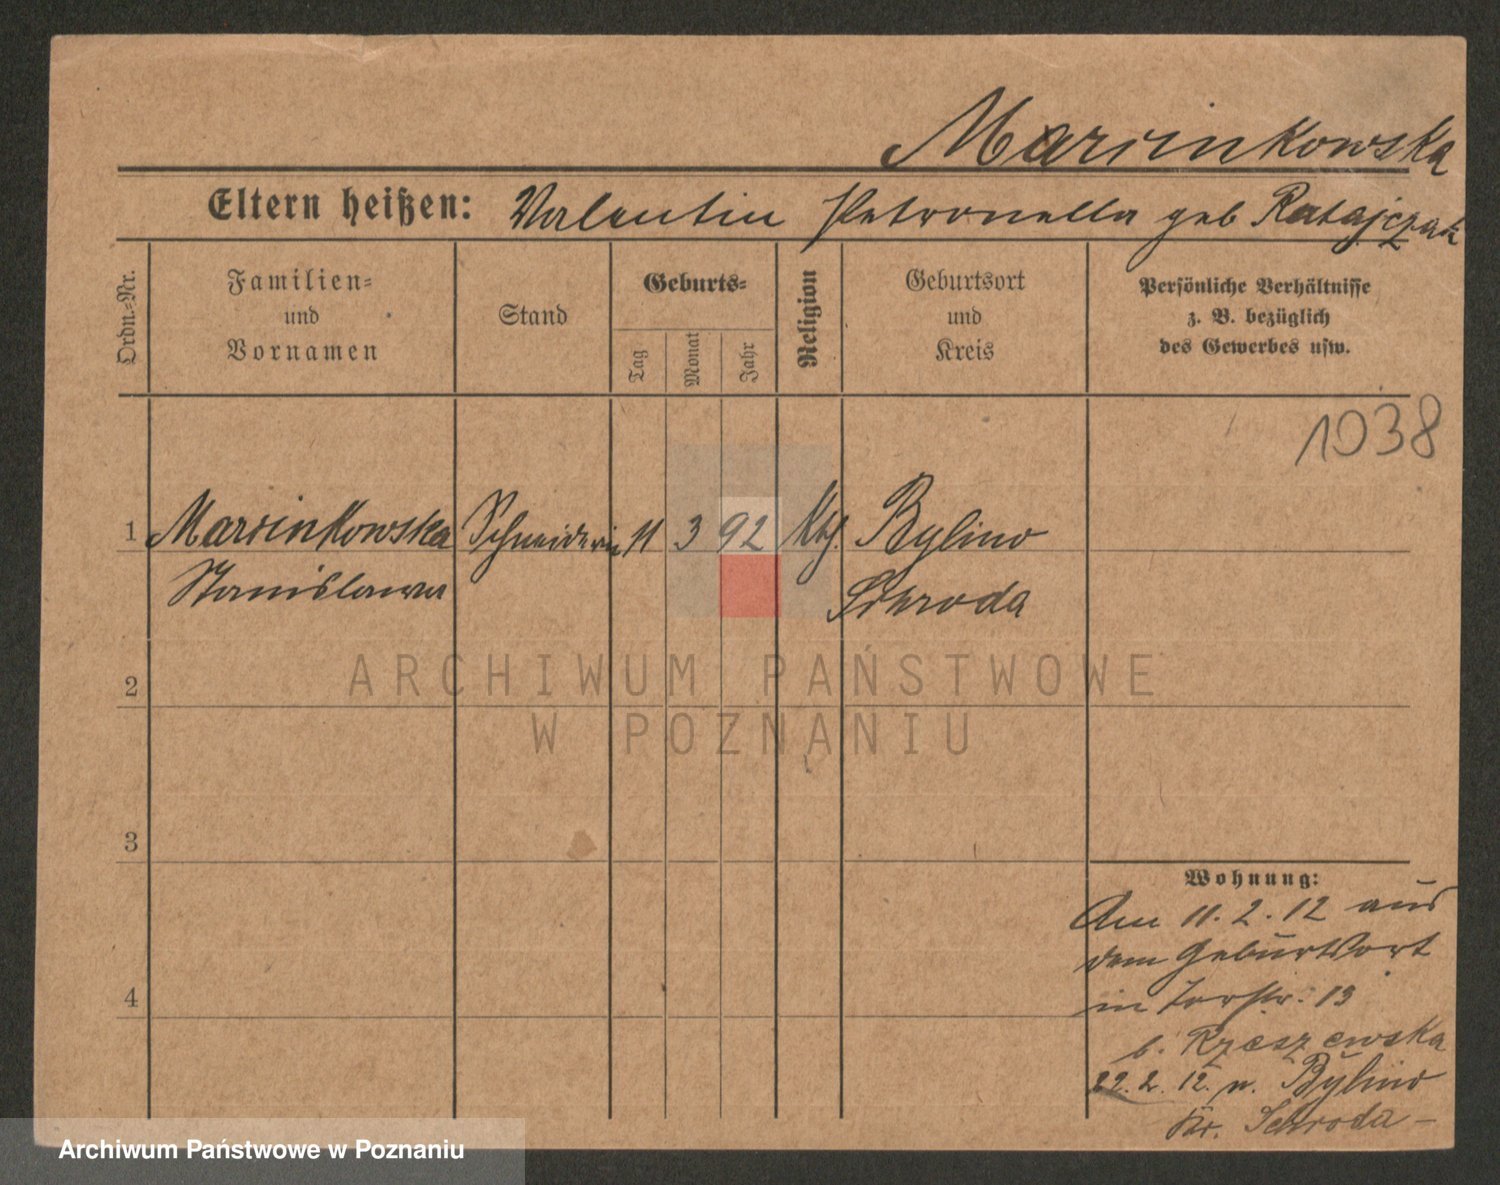 Marcinkowska
Eltern heißen: Valentin Petronella geb Ratajczak
Ordn.-Nr.
Familien-
und
Vornamen
Stand
Geburts-
Tag
Monat
Jahr
Religion
Geburtsort
und
Kreis
Persönliche Verhältnisse
z. B. bezüglich
des Gewerbes usw.
1038
1 Marcinkowska Schneiderin 11 3 92 Kth. Bylino
Stanislawa Schroda
2
ARCHIWUM PAŃSTWOWE
W POZNANIU
3
Wohnung:
Am 11. 2. 12 aus
dem Geburtsort
in Torstr. 13
4
b. Rzeszewska
22. 2. 12. n. Bylino
Kr. Schroda –
Archiwum Państwowe w Poznaniu